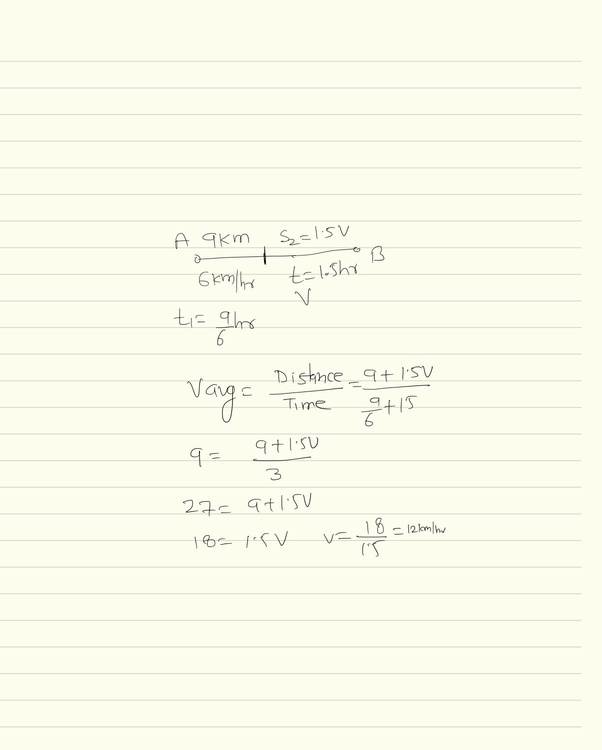 A 9km S₂=1.5V B
6km/hr t=1.5hr
V
t₁= 9/6 hr
Vavg= Distance/Time = (9+1.5V)/(9/6+15)
9= (9+1.5V)/3
27= 9+1.5V
18= 1.5V V= 18/1.5 = 12km/hr